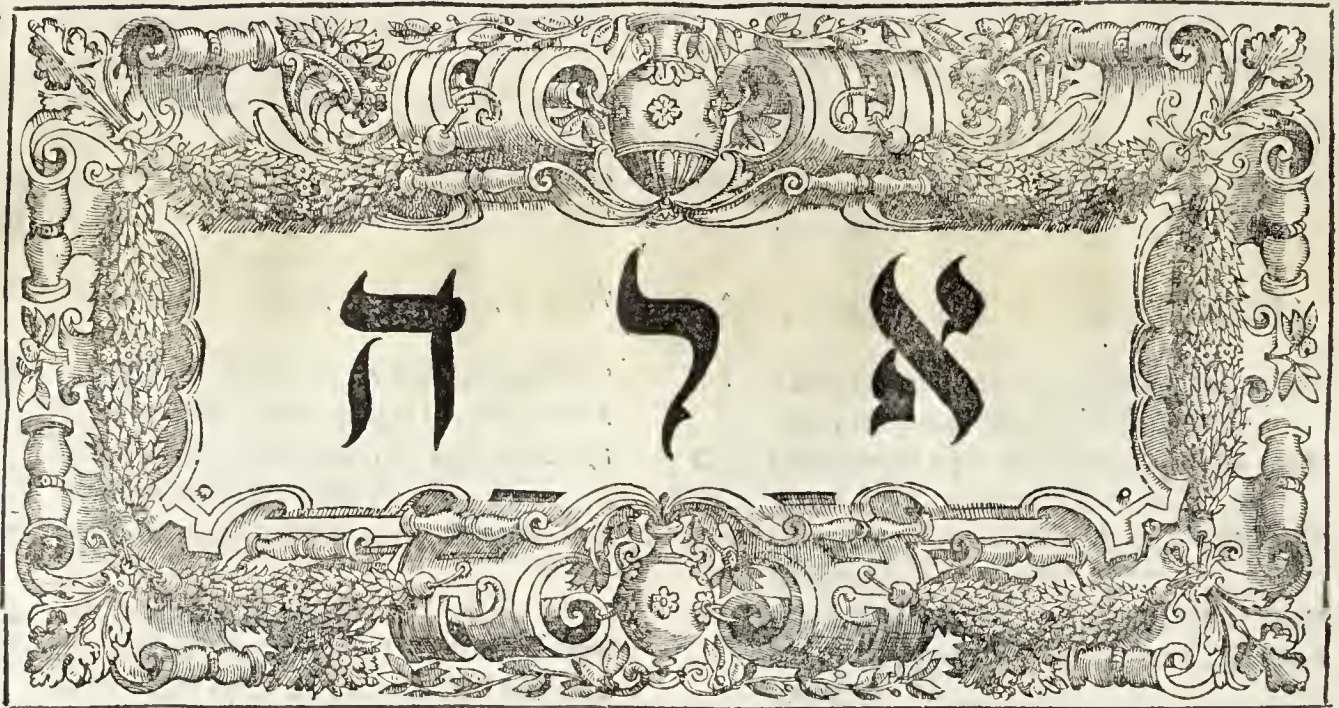 א ל ה